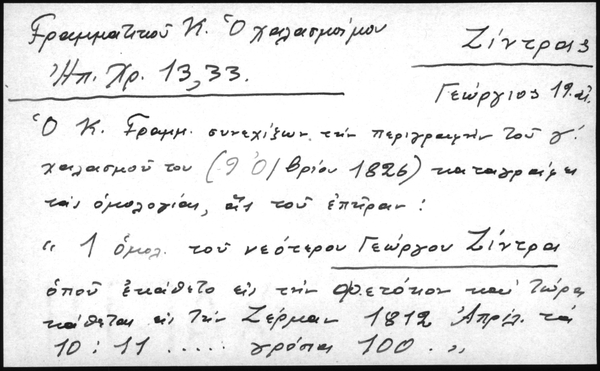 Γραμματικοῦ Κ. Ὁ χαλασμοί μου
Ζίντρας
Ἠπ. Χρ. 13, 33.
Γεώργιος 19. αἰ.
Ὁ Κ. Γραμμ. συνεχίζων τὴν περιγραφὴν τοῦ γ΄
χαλασμοῦ του (9 Ὀ/βρίου 1826) καταγράφει
τὰς ὁμολογίας, ἃς τοῦ ἐπῆραν:
" 1 ὁμολ. τοῦ νεότερου Γεώργου Ζίντρα
ὁποῦ ἐκάθετο εἰς τὴν Φετόκον καὶ τώρα
κάθεται εἰς τὴν Ζέρμαν 1812 Ἀπρίλ. τὰ
10 : 11 ..... γρόσια 100 . "